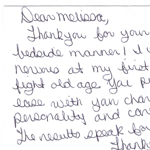 Dear Melissa,
Thankyou for your
bedside manner! I
nervous at my first
fight old age. You
ease with your
personality and
The results speak for
Thank